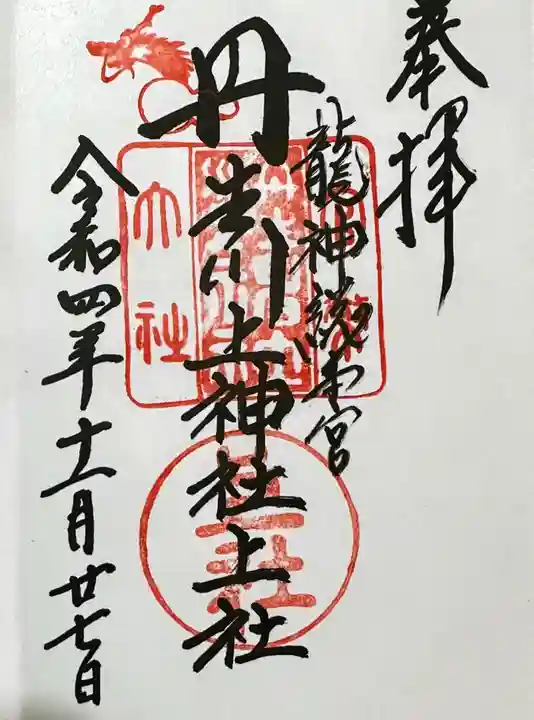 奉拝
龍神総本宮
丹生川上神社上社
令和四年十一月廿七日
大社